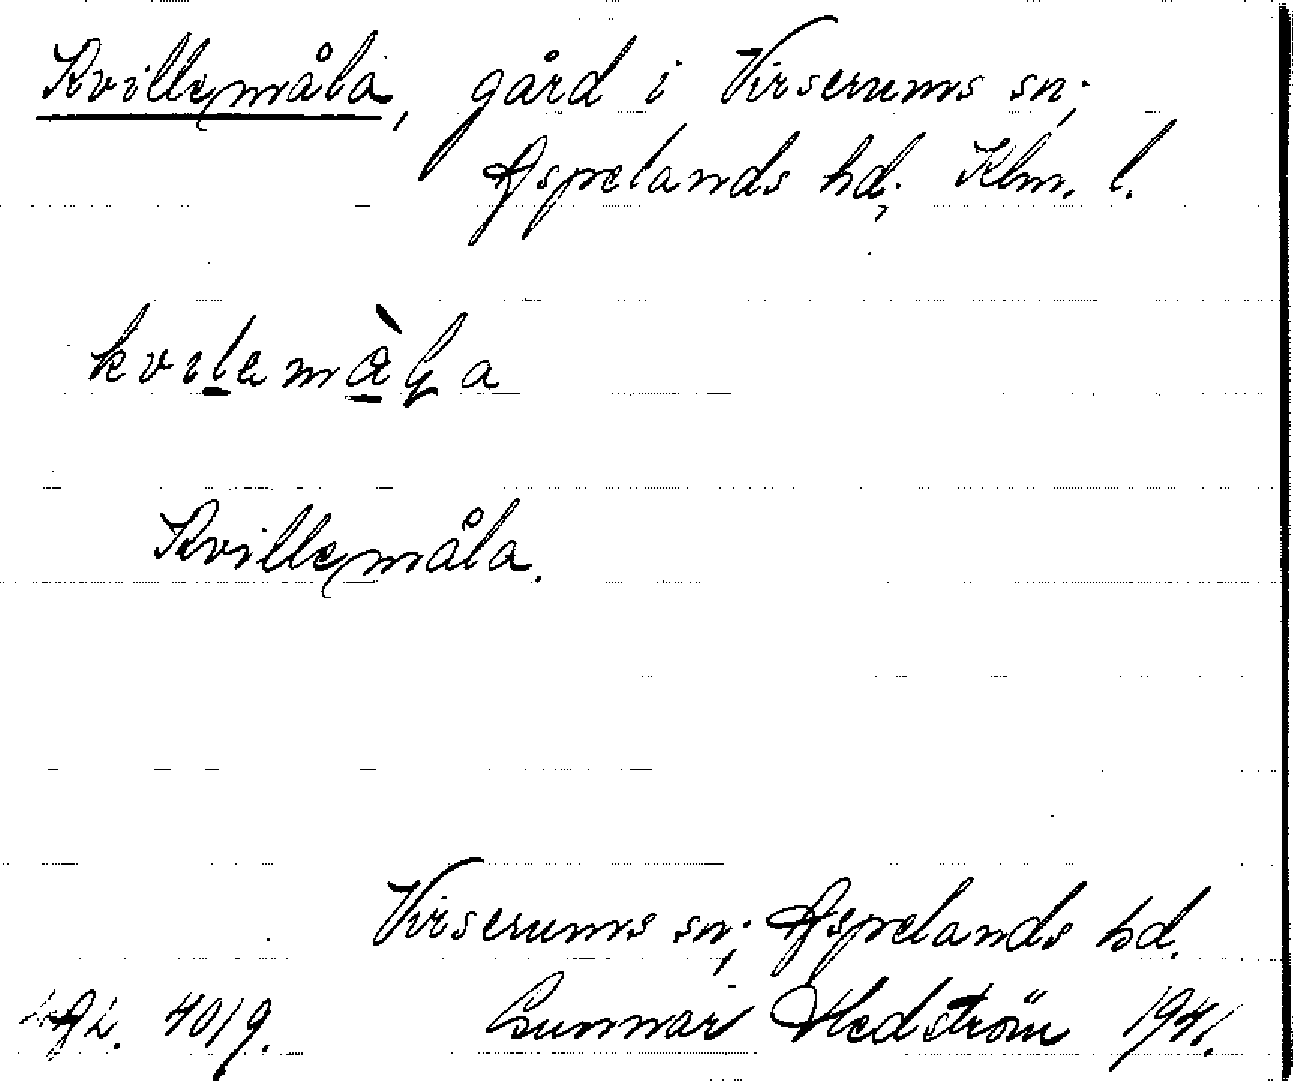 Kvillemåla, gård i Virserums sn;
Aspelands hd; Klm. l.
kvilemàɭa
Kvillemåla.
Virserums sn; Aspelands hd.
4019. Gunnar Hedström 1941.